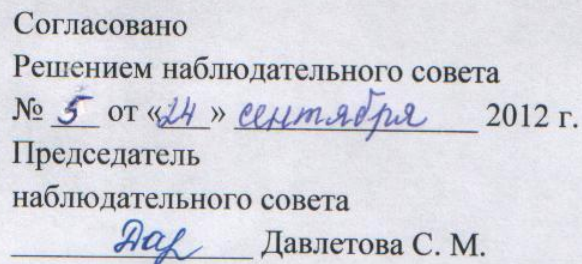 Согласовано
Решением наблюдательного совета
№ 5 от «24» сентября 2012 г.
Председатель
наблюдательного совета
Дав Давлетова С. М.